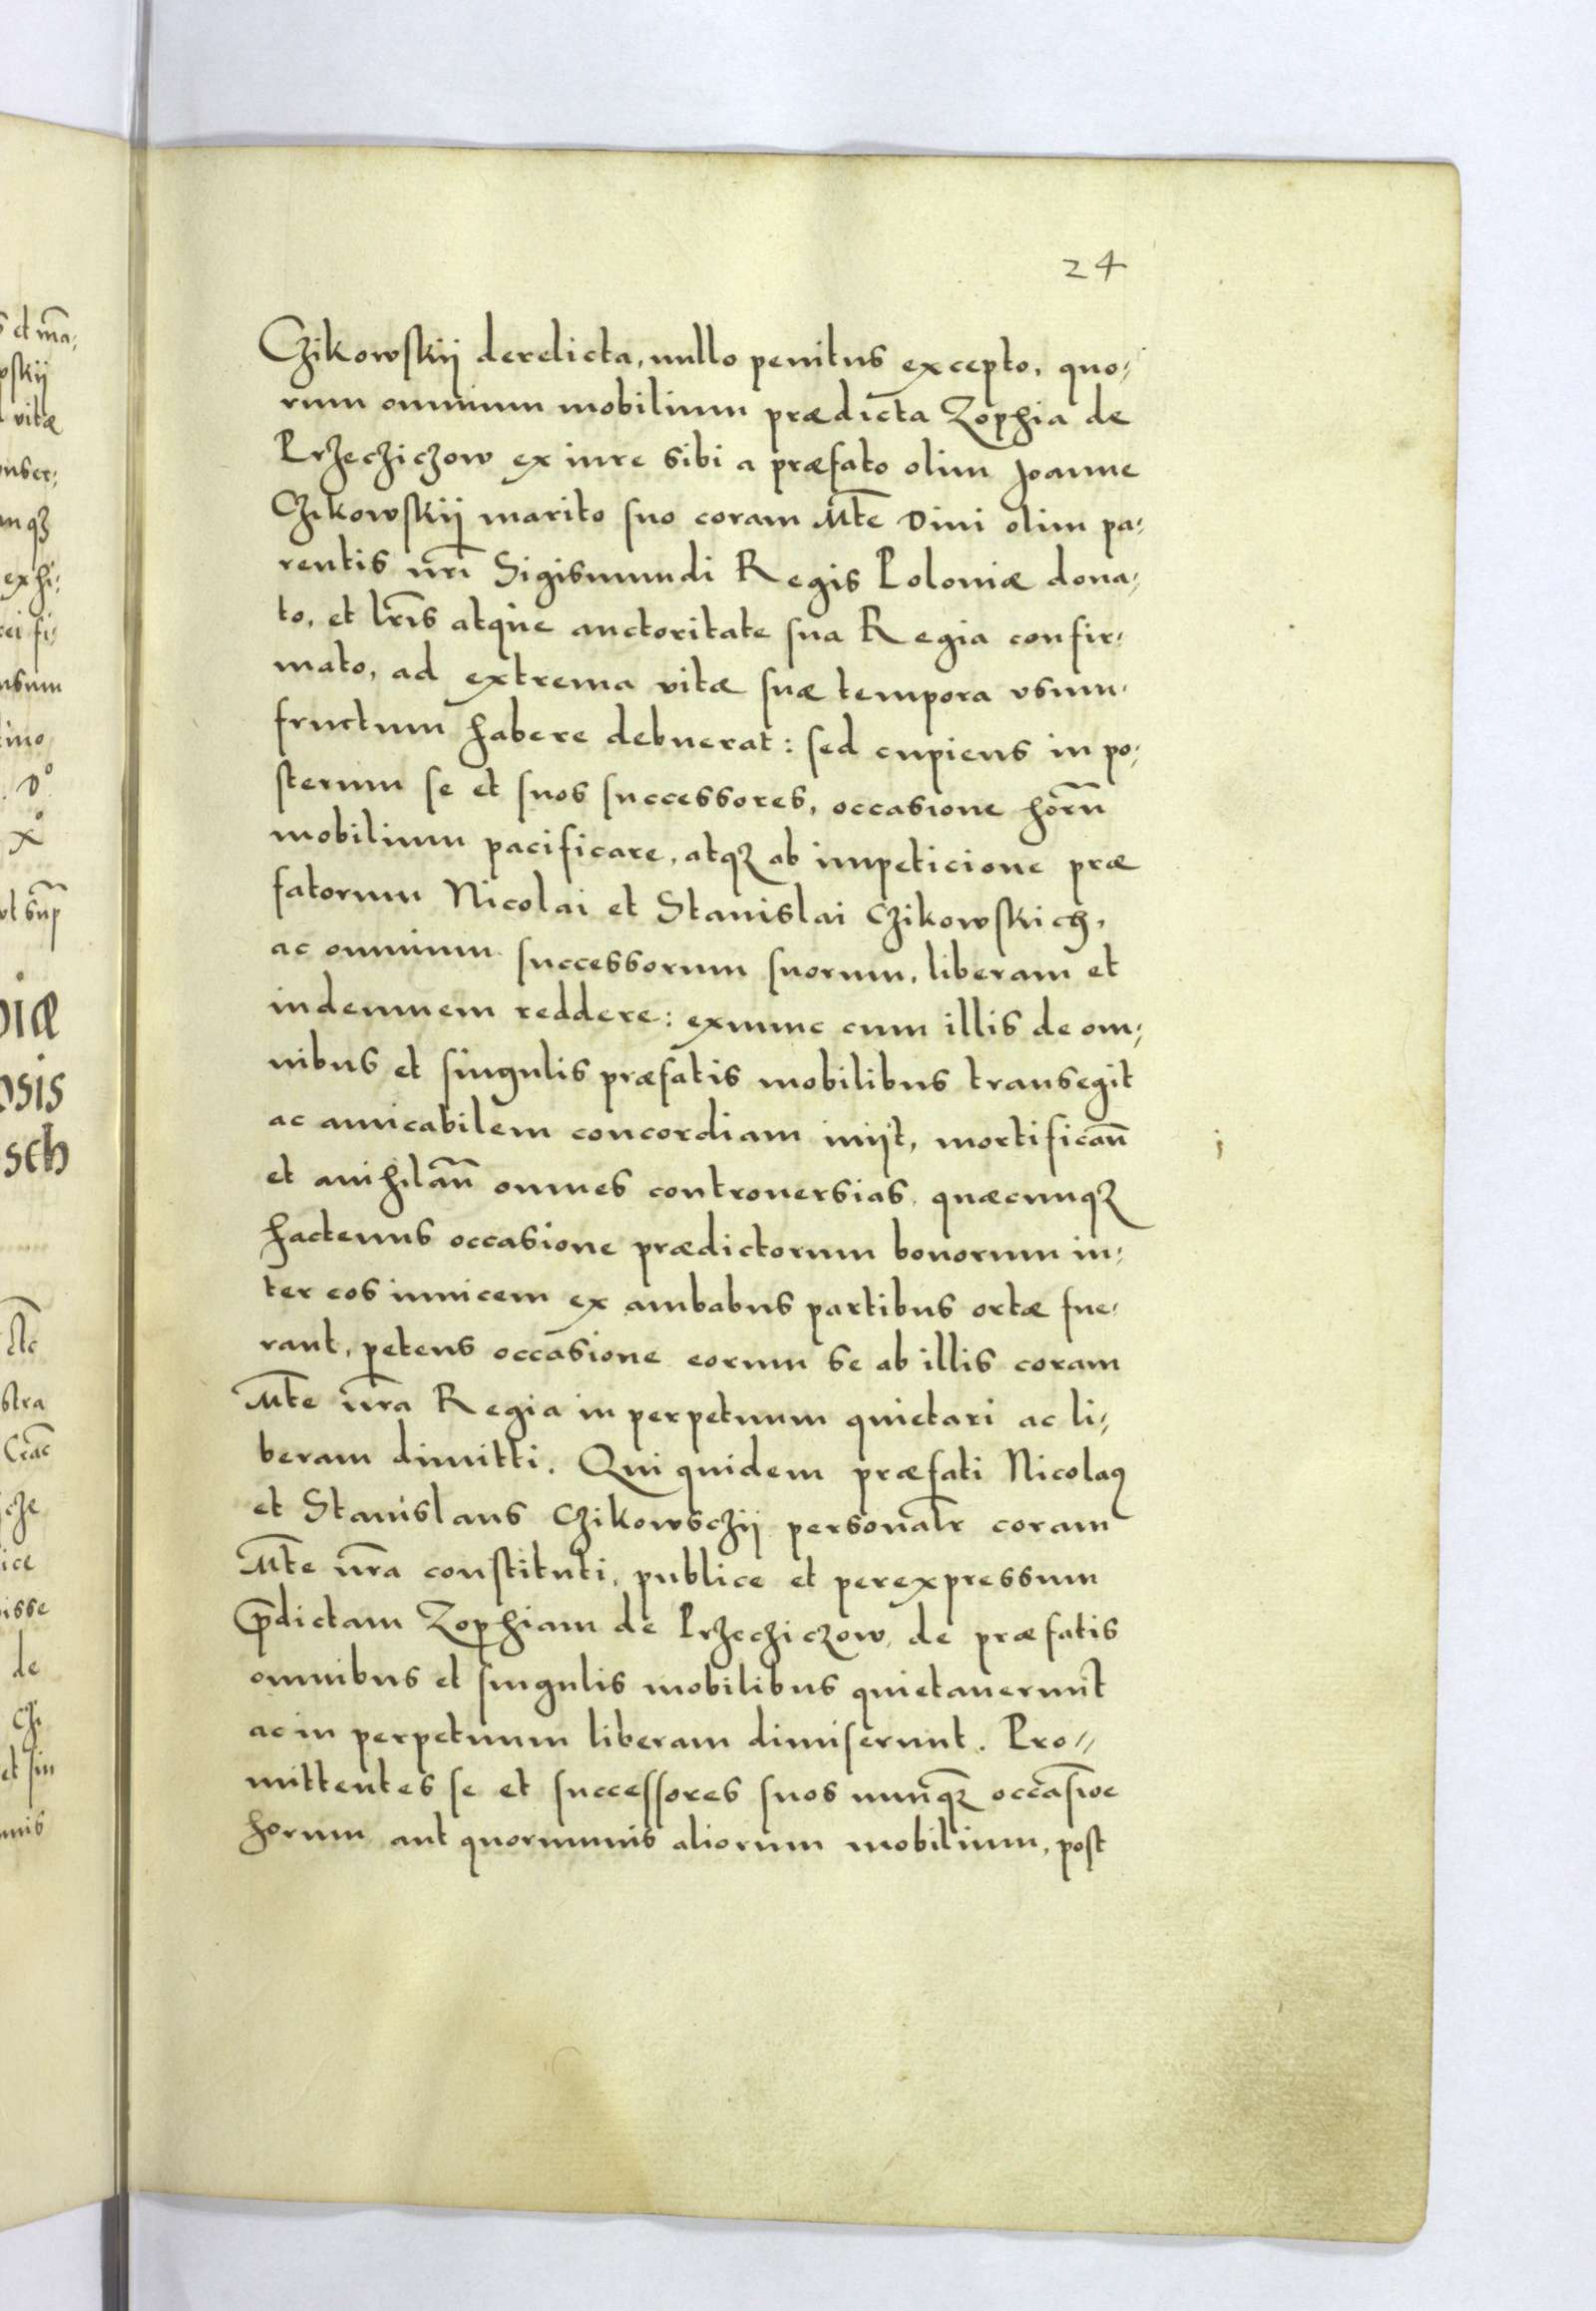 24
Czikowskij derelicta, nullo penitus excepto, quo,
rum omnium mobilium prædicta Zophia de
Przecziczow ex iure sibi a præfato olim Joanne
Czikowskij marito suo coram Mte Diui olim pa,
rentis nri Sigismundi Regis Poloniæ dona,
to, et lris atque auctoritate sua Regia confir,
mato, ad extrema vitæ suæ tempora vsum,
fructum habere debuerat: sed cupiens in po,
sterum se et suos successores, occasione horu
mobilium pacificare, atqz ab impeticione præ
fatorum Nicolai et Stanislai Czikowskich,
ac omnium successorum suorum, liberam et
indemnem reddere: exnunc cum illis de om,
nibus et singulis præfatis mobilibus transegit
ac amicabilem concordiam inijt, mortifican
et anihilan omnes controuersias quæcunqz
hactenus occasione prædictorum bonorum in,
ter eos inuicem ex ambabus partibus ortæ fue,
rant, petens occasione eorum se ab illis coram
Mte nra Regia in perpetuum quietari ac li,
beram dimitti. Qui quidem præfati Nicolaꝰ
et Stanislaus Czikowsczij personalr coram
Mte nra constituti, publice et perexpressum
Pdictam Zophiam de Przecziczow, de præfatis
omnibus et singulis mobilibus quietauerunt
ac in perpetuum liberam dimiserunt. Pro//
mittentes se et successores suos nunqz occasioe
horum aut quorumuis aliorum mobilium, post
s et ma,
pskij
vitæ
nser,
mqz
exhi,
rei fi,
nsum
imo
D°
X°
vt sup
piæ
osis
sch
stra
Crac
cze
ice
isse
de
czi
et sin
mnis